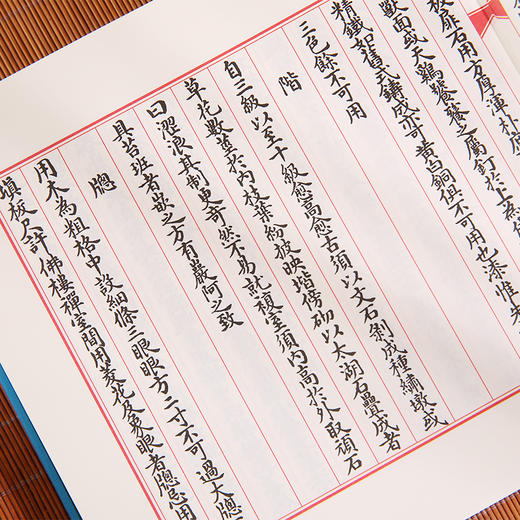 板扉石用方厚渾樸
獸面或天雞饕餮之屬釘於上為
精鐵如舊式鑄成亦可黃白銅俱不可用也漆惟
三色餘不可用
階
自三級以至十級愈高愈古須以文石剝成種繡墩或
草花數莖於內枝葉紛披映階傍砌以太湖石疊成者
曰澀浪其制更奇然不易就複室須內高於外取頑石
具苔斑者嵌之方有巖阿之致
牕
用木為粗格中設細條三眼眼方二寸不可過大牕
填板尺許佛樓禪室間用菱花及象眼者牕忌用